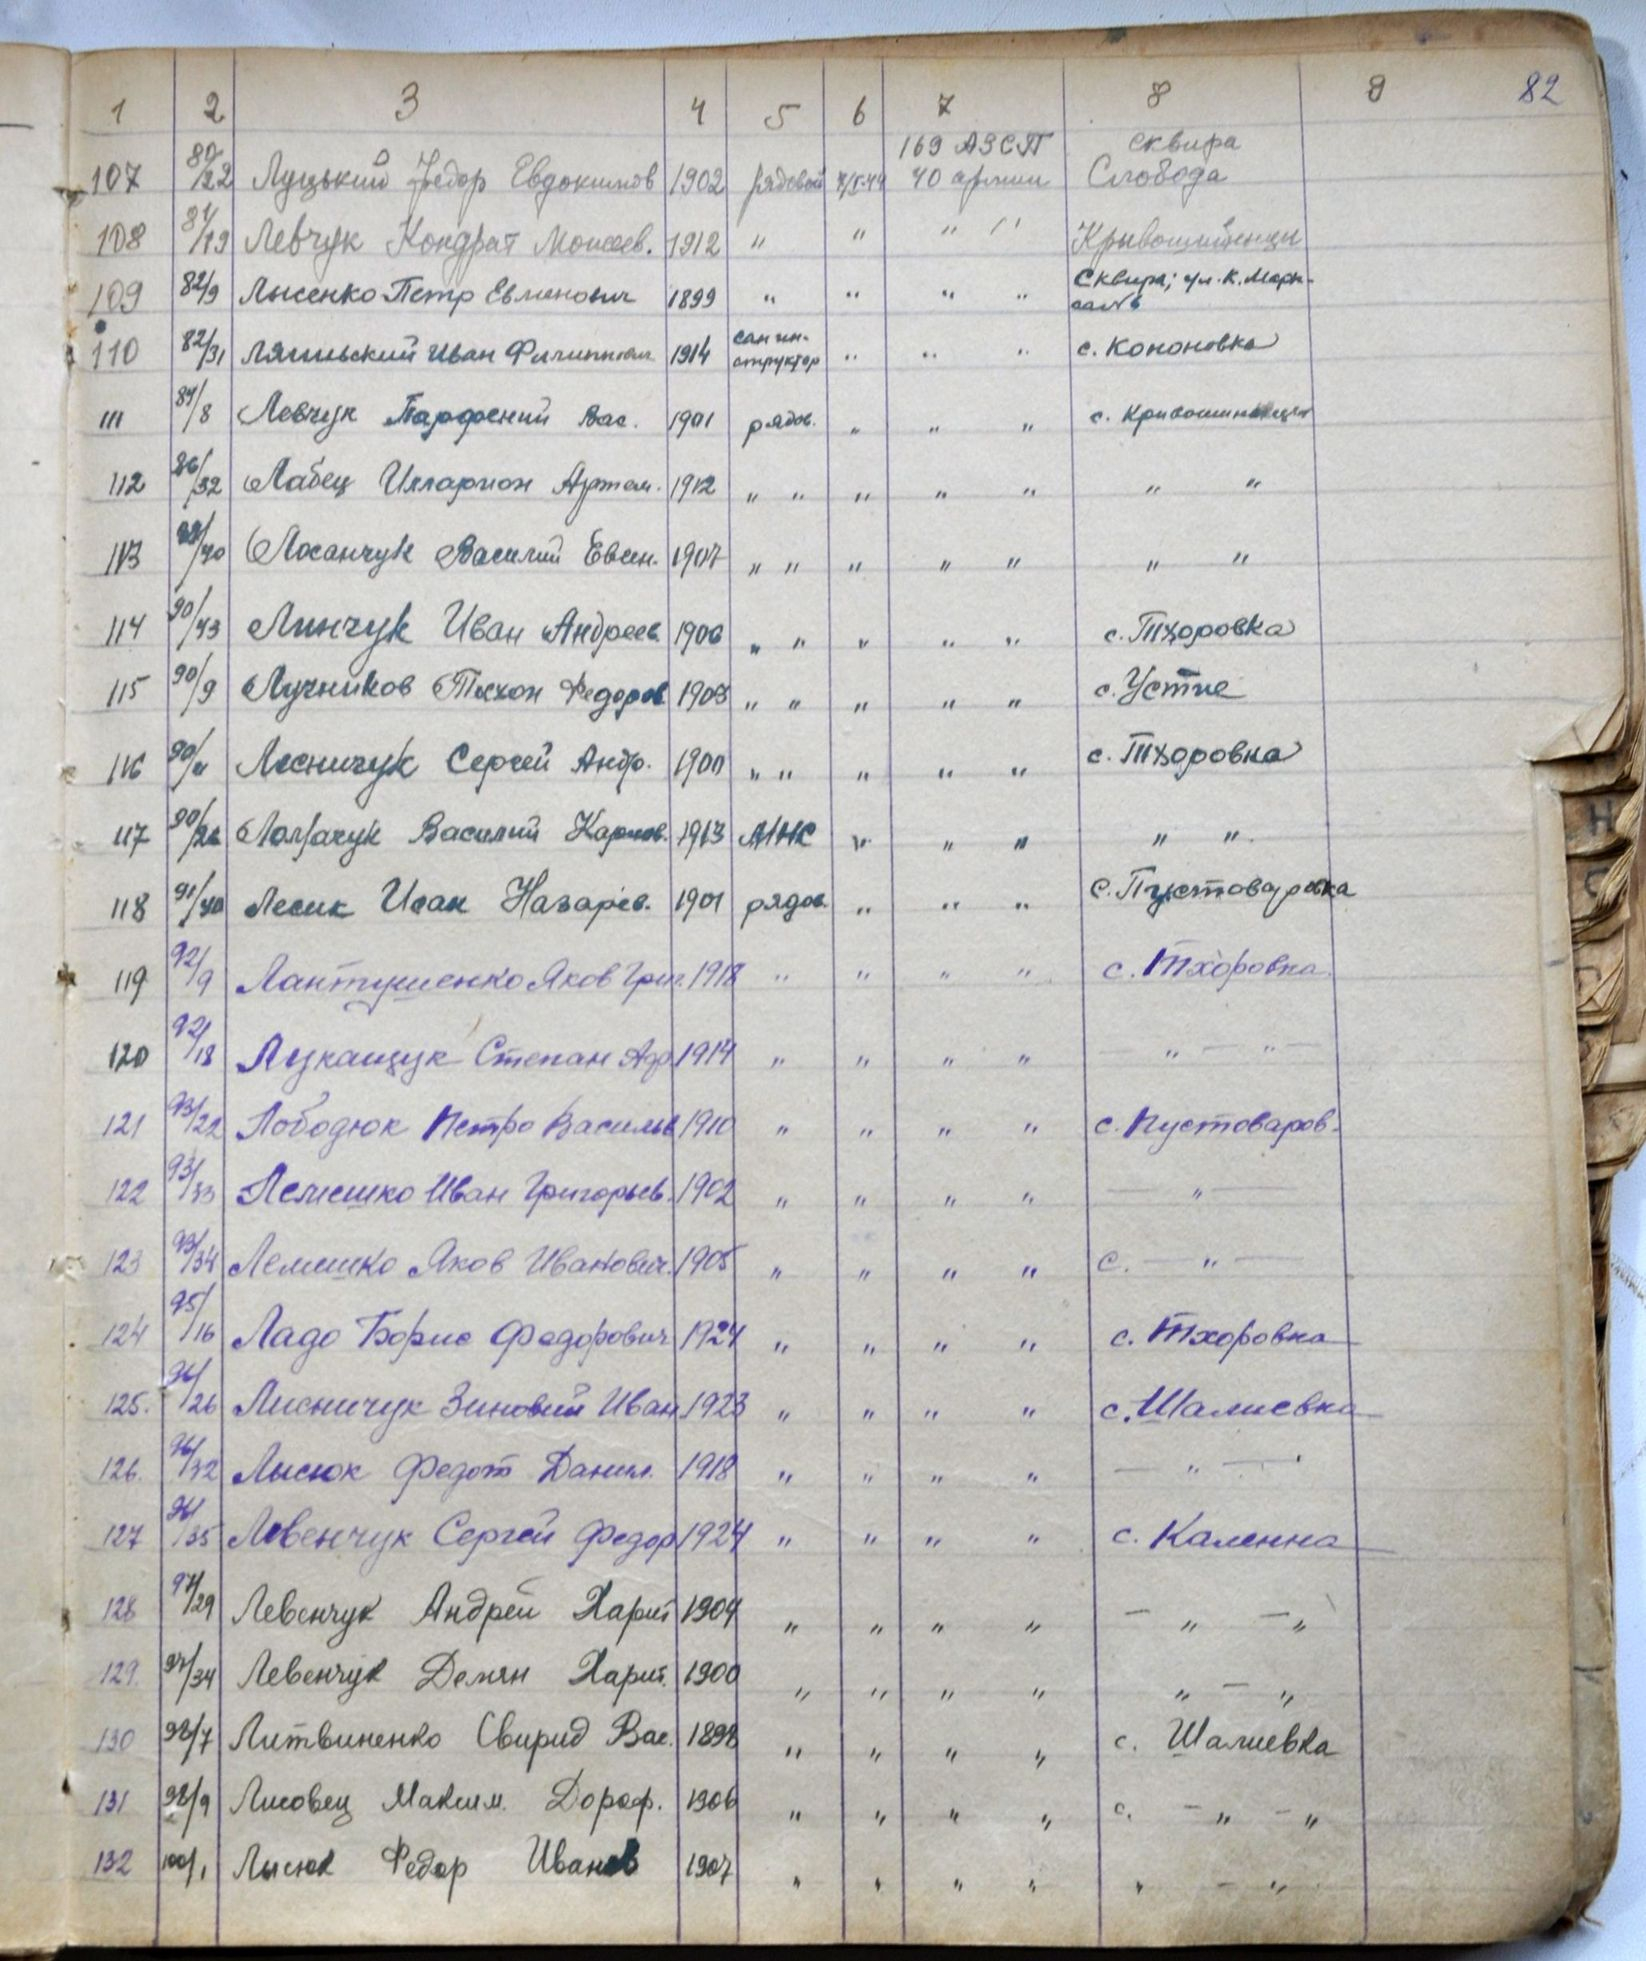 82
1 2 3 4 5 6 7 8 9
169 АЗСП Сквира
107 80/22 Луцький Федор Евдокимов 1902 рядовой 40 армии Слобода
108 81/19 Левчук Кондрат Моисеев. 1912 " " " " Крывошеинцы
109 82/9 Лысенко Петр Евменович 1899 " " " " Сквира; ул. К. Марк-
сан ин- са
110 82/31 Иван Филиппович 1914 структор " " " с. Кононовка
111 84/8 Левчук Парфений Вас. 1901 рядов. " " " с. Кривошиинцы
112 86/32 Лабец Илларион Артем. 1912 " " " " " " "
113 /40 Лосанчук Василий Евсен. 1907 " " " " " " "
114 90/43 Линчук Иван Андреев 1906 " " " " " с. Тхоровка
115 90/9 Лучников Тихон Федоров 1903 " " " " " с. Устие
116 90/11 Лесничук Сергей Андр. 1900 " " " " " с. Тхоровка
117 90/26 Василий Карпов. 1913 МНС " " " " "
118 91/40 Лесик Исак Назаров. 1901 рядов. " " " с. Пустоваровка
119 92/9 Лантушенко Яков Григ. 1918 " " " " с. Тхоровка
120 92/18 Лукащук Степан 1914 " " " " — " — " —
121 93/22 Лободюк Петро Васильв 1910 " " " " с. Пустоваров.
122 93/33 Лемешко Иван Григорьев. 1902 " " " " — " —
123 93/34 Лемешко Яков Иванович. 1905 " " " " с. — " —
124 95/16 Ладо Борис Федорович 1924 " " " " с. Тхоровка
125. 96/26 Лисничук Зиновий Иван 1923 " " " " с. Шалиевка
126. 96/32 Лысюк Федот Данил. 1918 " " " " — " —
127 96/35 Левенчук Сергей Федор 1924 " " " " с. Каленна
128 97/29 Левенчук Андрей Харит 1904 " " " " — " — "
129. 97/34 Левенчук Демян Харит. 1900 " " " " " — "
130 98/7 Литвиненко Свирид Вас. 1898 " " " " с. Шалиевка
131 98/9 Лисовец Максим. Дороф. 1906 " " " " с. — " — "
132 100/1 Лысюк Федор Иванов 1907 " " " " " — "
Н
С